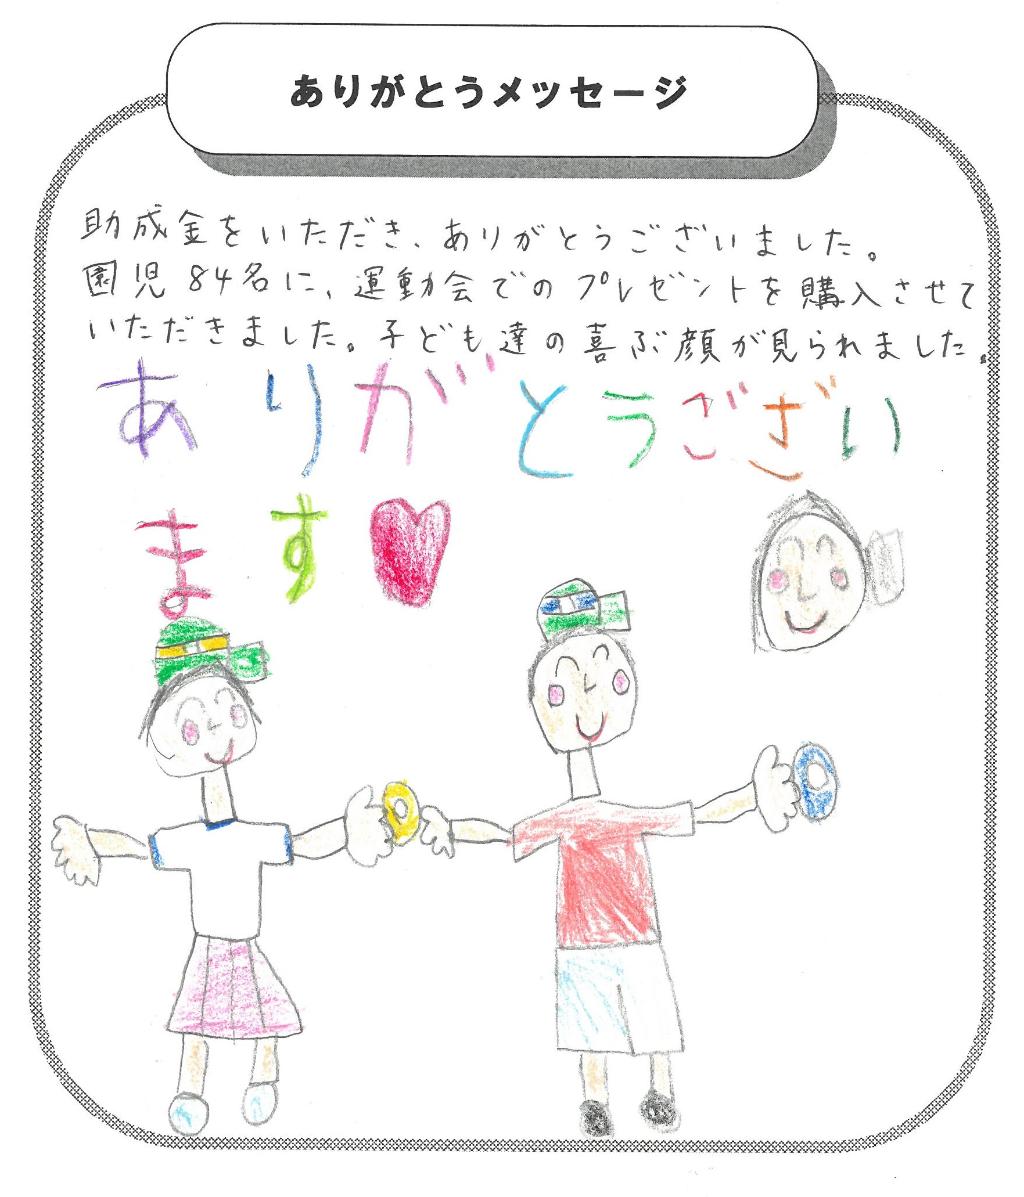 ありがとうメッセージ
助成金をいただき、ありがとうございました。
園児84名に、運動会でのプレゼントを購入させて
いただきました。子ども達の喜ぶ顔が見られました。
ありがとうござい
ます